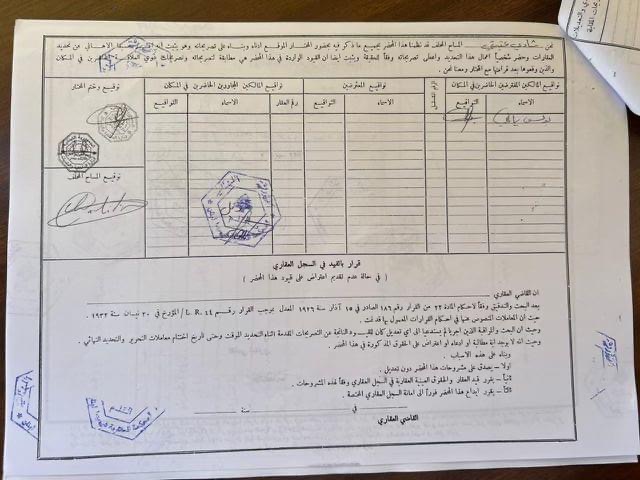 نحن شادي المساح المحلف قد نظمنا هذا المحضر بجميع ما ذكر فيه بحضور المختار الموقع ادناه وبناء على تصريحاته وهو يثبت انه
العقارات وحضر شخصياً اعمال هذا التحديد واعطى تصريحاته وفقاً للحقيقة ويثبت ايضاً ان القيود الواردة في هذا المحضر هي مطابقة لتصريحاته وتصريحات ذوي العلاقة في المكان
والذين وقعوا بعد قراءتها مع المختار ومعنا نحن .
تواقيع المالكين المفترضين الحاضرين في المكان
تواقيع المعترضين
تواقيع المالكين المجاورين الحاضرين في المكان
توقيع وختم المختار
الاسماء
التواقيع
الاسماء
التواقيع
رقم العقار
الاسماء
التواقيع
توقيع المساح المحلف
قرار بالقيد في السجل العقاري
( في حالة عدم تقديم اعتراض على قيود هذا المحضر )
ان القاضي العقاري
بعد البحث والتدقيق وفقاً لاحكام المادة ٢٢ من القرار رقم ١٨٦ الصادر في ١٥ آذار سنة ١٩٢٦ المعدل بموجب القرار رقم ٤٤ / L. R. المؤرخ في ٢٠ نيسان سنة ١٩٣٢
حيث ان المعاملات المنصوص عنها في احكام القرارات المعمول بها قد تمت .
وحيث ان البحث والمراقبة الذين اجريا لم يستدعيا الى اي تعديل كان للقيود والناتجة عن التصريحات المقدمة اثناء التحديد المؤقت وحتى تاريخ اختتام معاملات التحرير والتحديد النهائي .
وحيث انه لا يوجد اية مطالبة أو ادعاء او اعتراض على الحقوق المذكورة في هذا المحضر .
وبناء على هذه الاسباب .
اولا - يصدق على مشروحات هذا المحضر دون تعديل .
ثانياً - يقرر قيد العقار والحقوق العينية العقارية في السجل العقاري وفقاً لهذه المشروحات .
ثالثاً - يقرر ايداع هذا المحضر فوراً الى امانة السجل العقاري المختصة .
في سنة
القاضي العقاري